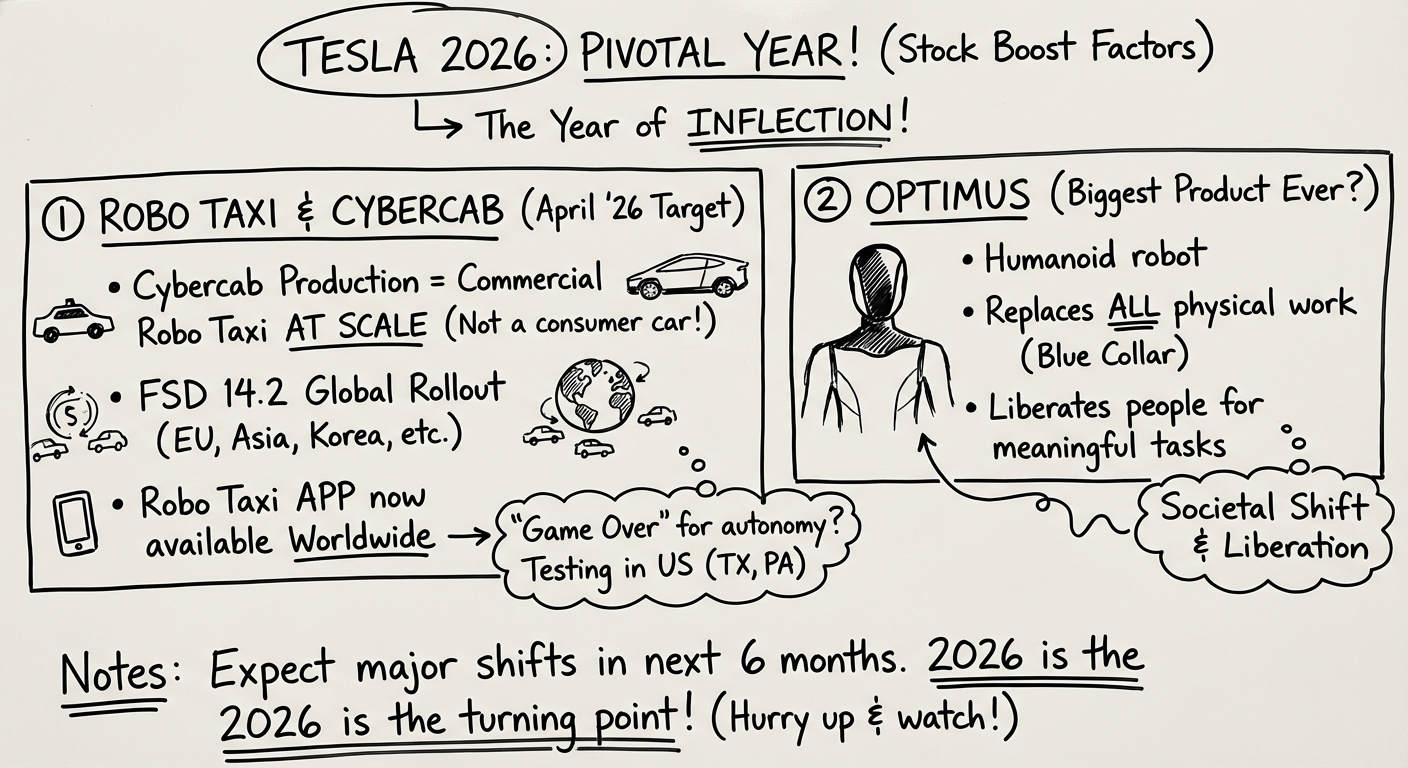 TESLA 2026: PIVOTAL YEAR! (Stock Boost Factors)
The Year of INFLECTION!
① ROBO TAXI & CYBERCAB (April '26 Target)
• Cybercab Production = Commercial
Robo Taxi AT SCALE (Not a consumer car!)
S
• FSD 14.2 Global Rollout
(EU, Asia, Korea, etc.)
• Robo Taxi APP now
available Worldwide
"Game Over" for autonomy?
Testing in US (TX, PA)
② OPTIMUS (Biggest Product Ever?)
• Humanoid robot
• Replaces ALL physical work
(Blue Collar)
• Liberates people for
meaningful tasks
Societal Shift
& Liberation
Notes: Expect major shifts in next 6 months. 2026 is the
2026 is the turning point! (Hurry up & watch!)